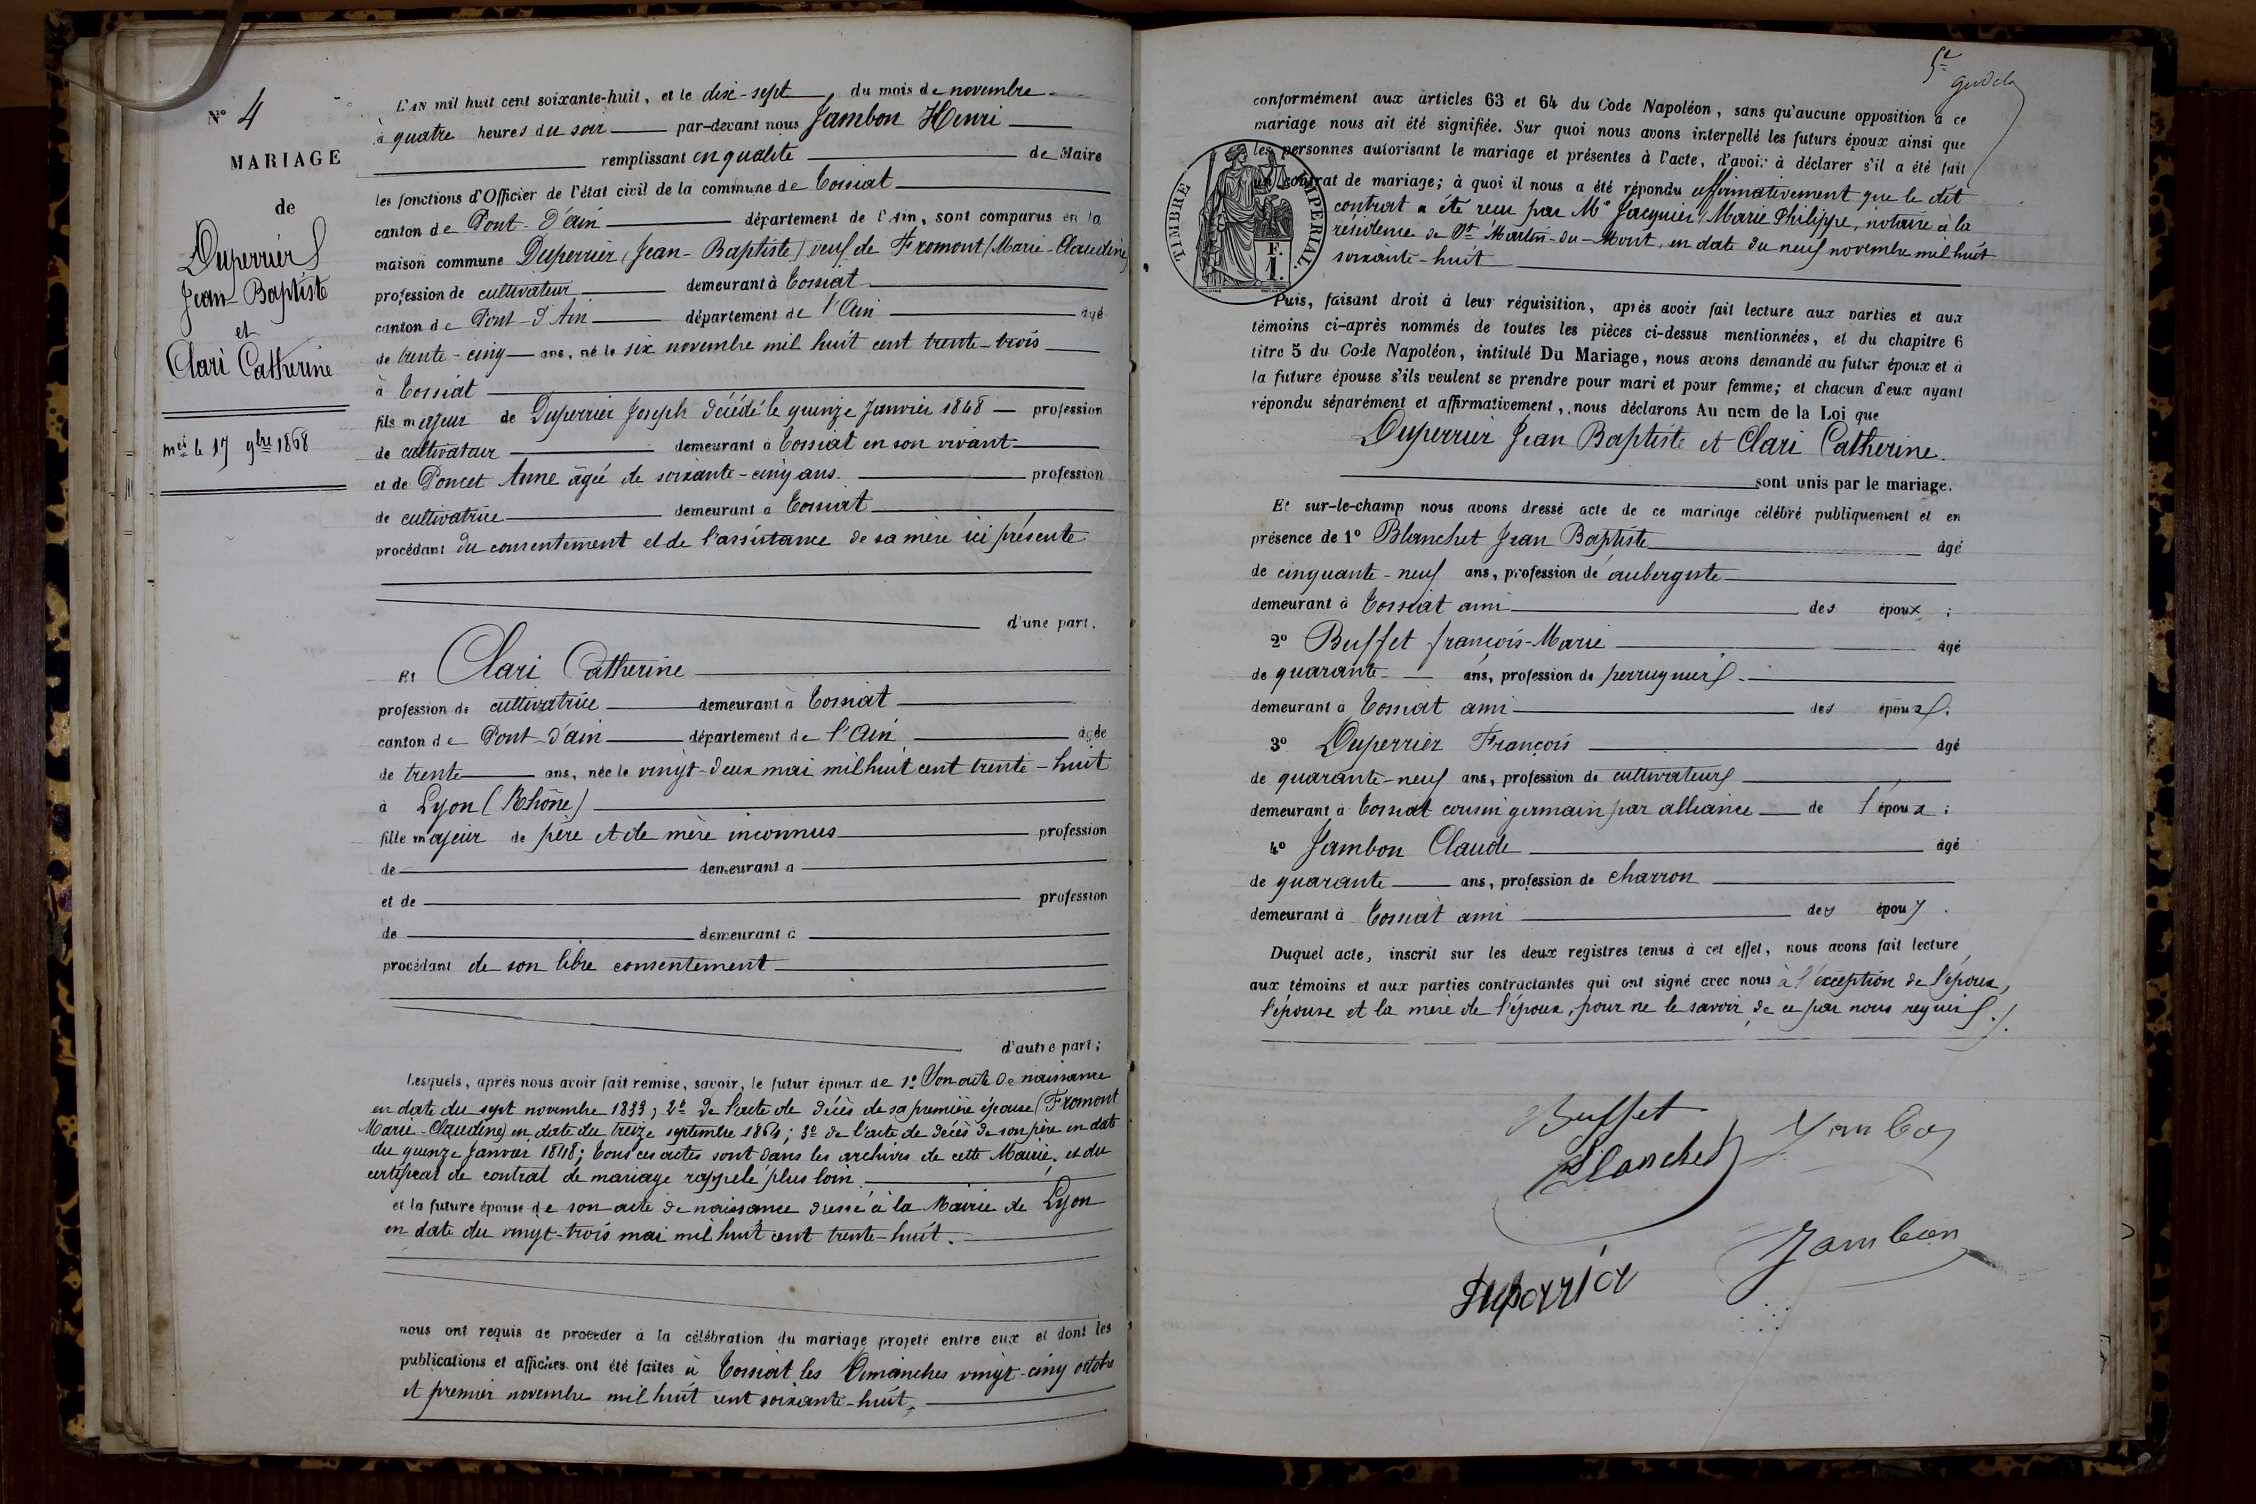 N° 4
MARIAGE
de
Duperrier
Jean-Baptiste
et
Clari Catherine
le 17 9bre 1868
L'AN mil huit cent soixante-huit, et le dix-sept du mois de novembre
à quatre heures du soir par-devant nous Jambon Henri
remplissant en qualité de Maire
les fonctions d'Officier de l'état civil de la commune de Tossiat
canton de Pont-d'ain département de l'Ain, sont comparus en la
maison commune Duperrier (Jean-Baptiste) veuf de Fromont (Marie-Claudine)
profession de cultivateur demeurant à Tossiat
canton de Pont-d'Ain département de l'Ain âgé
de trente-cinq ans, né le six novembre mil huit cent trente-trois
à Tossiat
fils majeur de Duperrier Joseph décédé le quinze Janvier 1848 profession
de cultivateur demeurant à Tossiat en son vivant
et de Poncet Anne âgée de soixante-cinq ans. profession
de cultivatrice demeurant à Tossiat
procédant du consentement et de l'assistance de sa mère ici présente
d'une part.
Et Clari Catherine
profession de cultivatrice demeurant à Tossiat
canton de Pont-d'ain département de l'Ain âgée
de trente ans, née le vingt-deux mai mil huit cent trente-huit
à Lyon (Rhône)
fille majeur de père et de mère inconnus profession
de demeurant à
et de profession
de demeurant à
procédant de son libre consentement
d'autre part;
Lesquels, après nous avoir fait remise, savoir, le futur époux de 1° Son acte de naissance
en date du sept novembre 1833; 2° de l'acte de décès de sa première épouse (Fromont
Marie-Claudine) en date du treize septembre 1864; 3° de l'acte de décès de son père en date
du quinze Janvier 1848; tous ces actes sont dans les archives de cette Mairie. et du
certificat de contrat de mariage rappelé plus loin.
et la future épouse de son acte de naissance dressé à la Mairie de Lyon
en date du vingt-trois mai mil huit cent trente-huit.
nous ont requis de procéder à la célébration du mariage projeté entre eux et dont les
publications et affiches ont été faites à Tossiat les Dimanches vingt-cinq octobre
et premier novembre mil huit cent soixante-huit.
5e
conformément aux articles 63 et 64 du Code Napoléon, sans qu'aucune opposition à ce
mariage nous ait été signifiée. Sur quoi nous avons interpellé les futurs époux ainsi que
les personnes autorisant le mariage et présentes à l'acte, d'avoir à déclarer s'il a été fait
un contrat de mariage; à quoi il nous a été répondu affirmativement que le dit
contrat a été reçu par Me Jacquier, Marie Philippe, notaire à la
résidence de St Martin-du-Mont, en date du neuf novembre mil huit
soixante-huit
TIMBRE IMPERIAL.
1 F.
Puis, faisant droit à leur réquisition, après avoir fait lecture aux parties et aux
témoins ci-après nommés de toutes les pièces ci-dessus mentionnées, et du chapitre 6
titre 5 du Code Napoléon, intitulé Du Mariage, nous avons demandé au futur époux et à
la future épouse s'ils veulent se prendre pour mari et pour femme; et chacun d'eux ayant
répondu séparément et affirmativement, nous déclarons Au nom de la Loi que
Duperrier Jean Baptiste et Clari Catherine.
sont unis par le mariage.
Et sur-le-champ nous avons dressé acte de ce mariage célébré publiquement et en
présence de 1° Blanchet Jean Baptiste âgé
de cinquante-neuf ans, profession de aubergiste
demeurant à Tossiat ami des époux;
2° Buffet françois-Marie âgé
de quarante ans, profession de perruquier
demeurant à Tossiat ami des époux;
3° Duperrier François âgé
de quarante-neuf ans, profession de cultivateur
demeurant à Tossiat cousin germain par alliance de l'époux;
4° Jambon Claude âgé
de quarante ans, profession de charron
demeurant à Tossiat ami des époux.
Duquel acte, inscrit sur les deux registres tenus à cet effet, nous avons fait lecture
aux témoins et aux parties contractantes qui ont signé avec nous à l'exception de l'époux,
l'épouse et la mère de l'époux, pour ne le savoir, de ce par nous requis.
Buffet
Jambon
Blanchet
Jambon
Duperrier